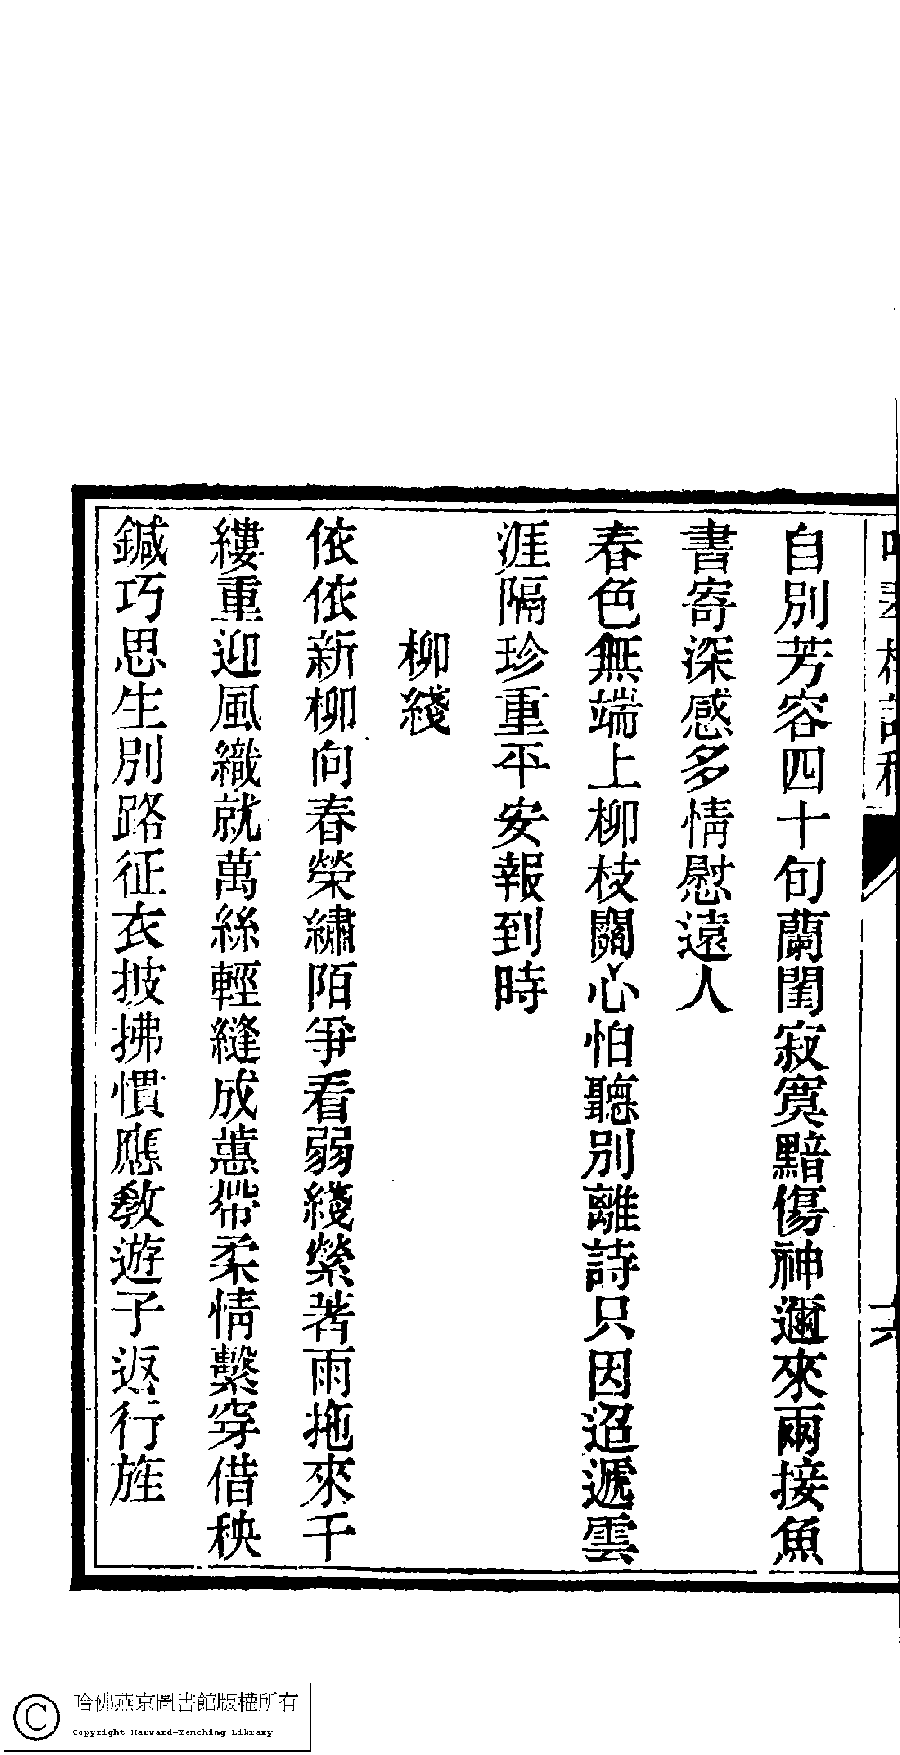 自別芳容四十旬蘭閨寂寞黯傷神邇來兩接魚
書寄深感多情慰遠人
春色無端上柳枝關心怕聽別離詩只因迢遞雲
涯隔珍重平安報到時
柳綫
依依新柳向春榮繡陌爭看弱綫縈著雨拖來千
縷重迎風織就萬絲輕縫成蕙帶柔情繫穿借秧
鍼巧思生別路征衣披拂慣應教遊子返行旌
哈佛燕京圖書館版權所有
Copyright Harvard-Yenching Library